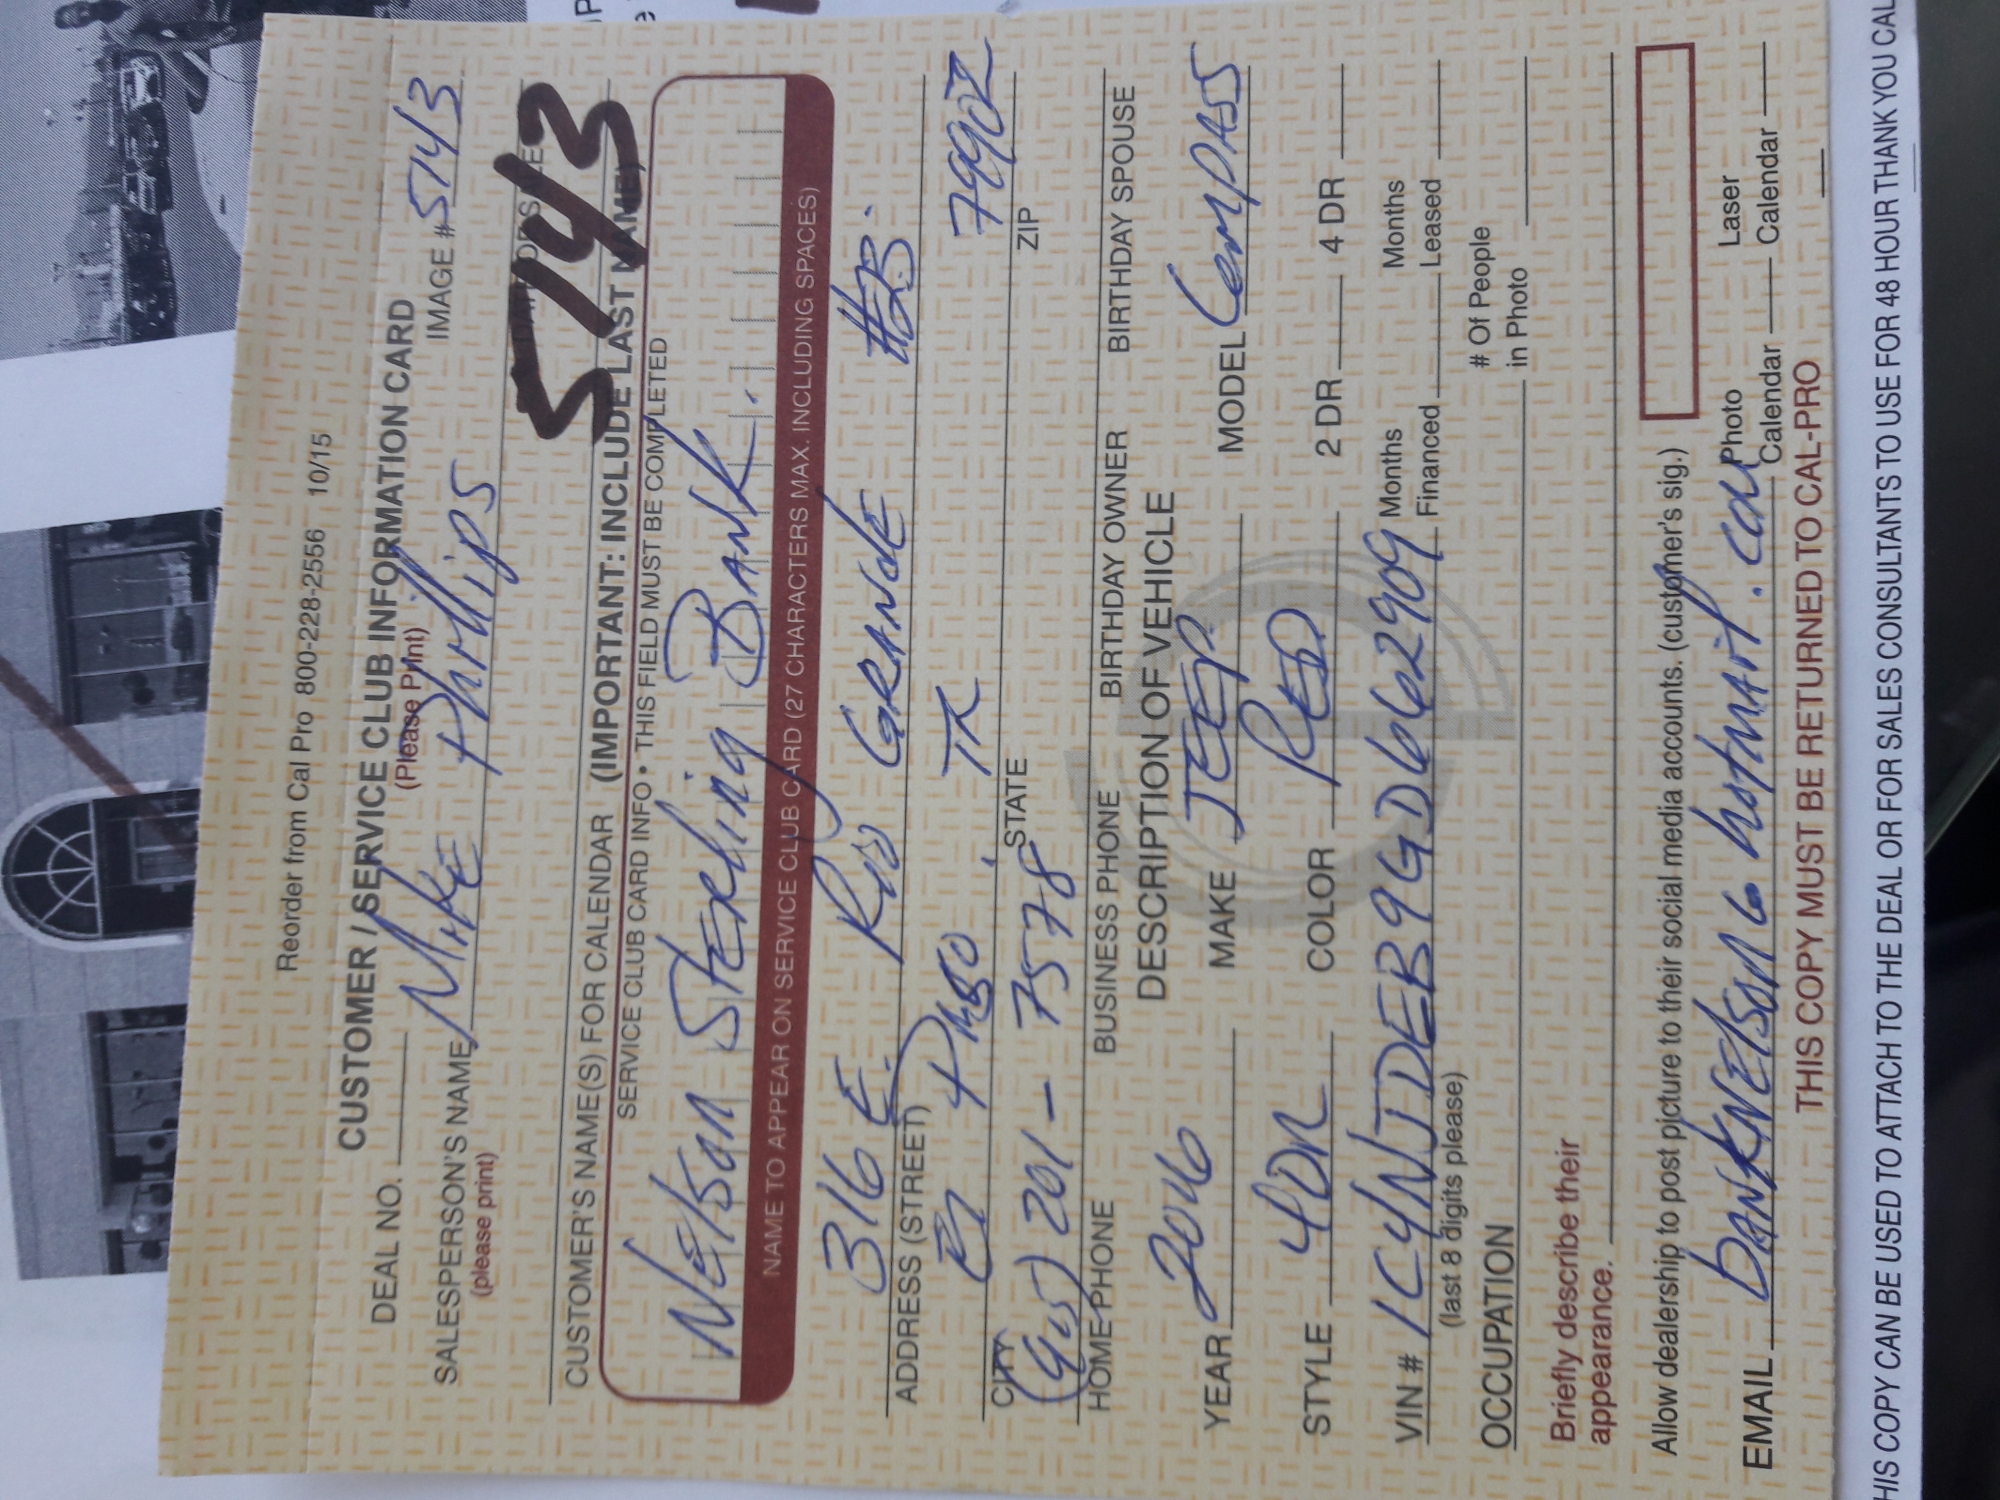 Reorder from Cal Pro 800-228-2556 10/15
CUSTOMER / SERVICE CLUB INFORMATION CARD
DEAL NO. (Please Print) IMAGE # 5743
SALESPERSON'S NAME Mike Phillips
(please print)
5743
CUSTOMER'S NAME(S) FOR CALENDAR (IMPORTANT: INCLUDE LAST NAME)
SERVICE CLUB CARD INFO • THIS FIELD MUST BE COMPLETED
Nelson Sterling Bank.
NAME TO APPEAR ON SERVICE CLUB CARD (27 CHARACTERS MAX. INCLUDING SPACES)
316 E. Rio GRANDE #2B.
ADDRESS (STREET)
El PASO, TX 79902
CITY STATE ZIP
(915) 201-7578
HOME PHONE BUSINESS PHONE BIRTHDAY OWNER BIRTHDAY SPOUSE
DESCRIPTION OF VEHICLE
YEAR 2016 MAKE JEEP MODEL COMPASS
STYLE 4DR COLOR RED 2 DR 4 DR
VIN # 1C4NJDEB9GD662909 Months Financed Months Leased
(last 8 digits please)
OCCUPATION # Of People in Photo
Briefly describe their
appearance.
Allow dealership to post picture to their social media accounts. (customer's sig.)
EMAIL DANKNElson6 hotmail.com Photo Calendar Laser Calendar
THIS COPY MUST BE RETURNED TO CAL-PRO
THIS COPY CAN BE USED TO ATTACH TO THE DEAL OR FOR SALES CONSULTANTS TO USE FOR 48 HOUR THANK YOU CAL